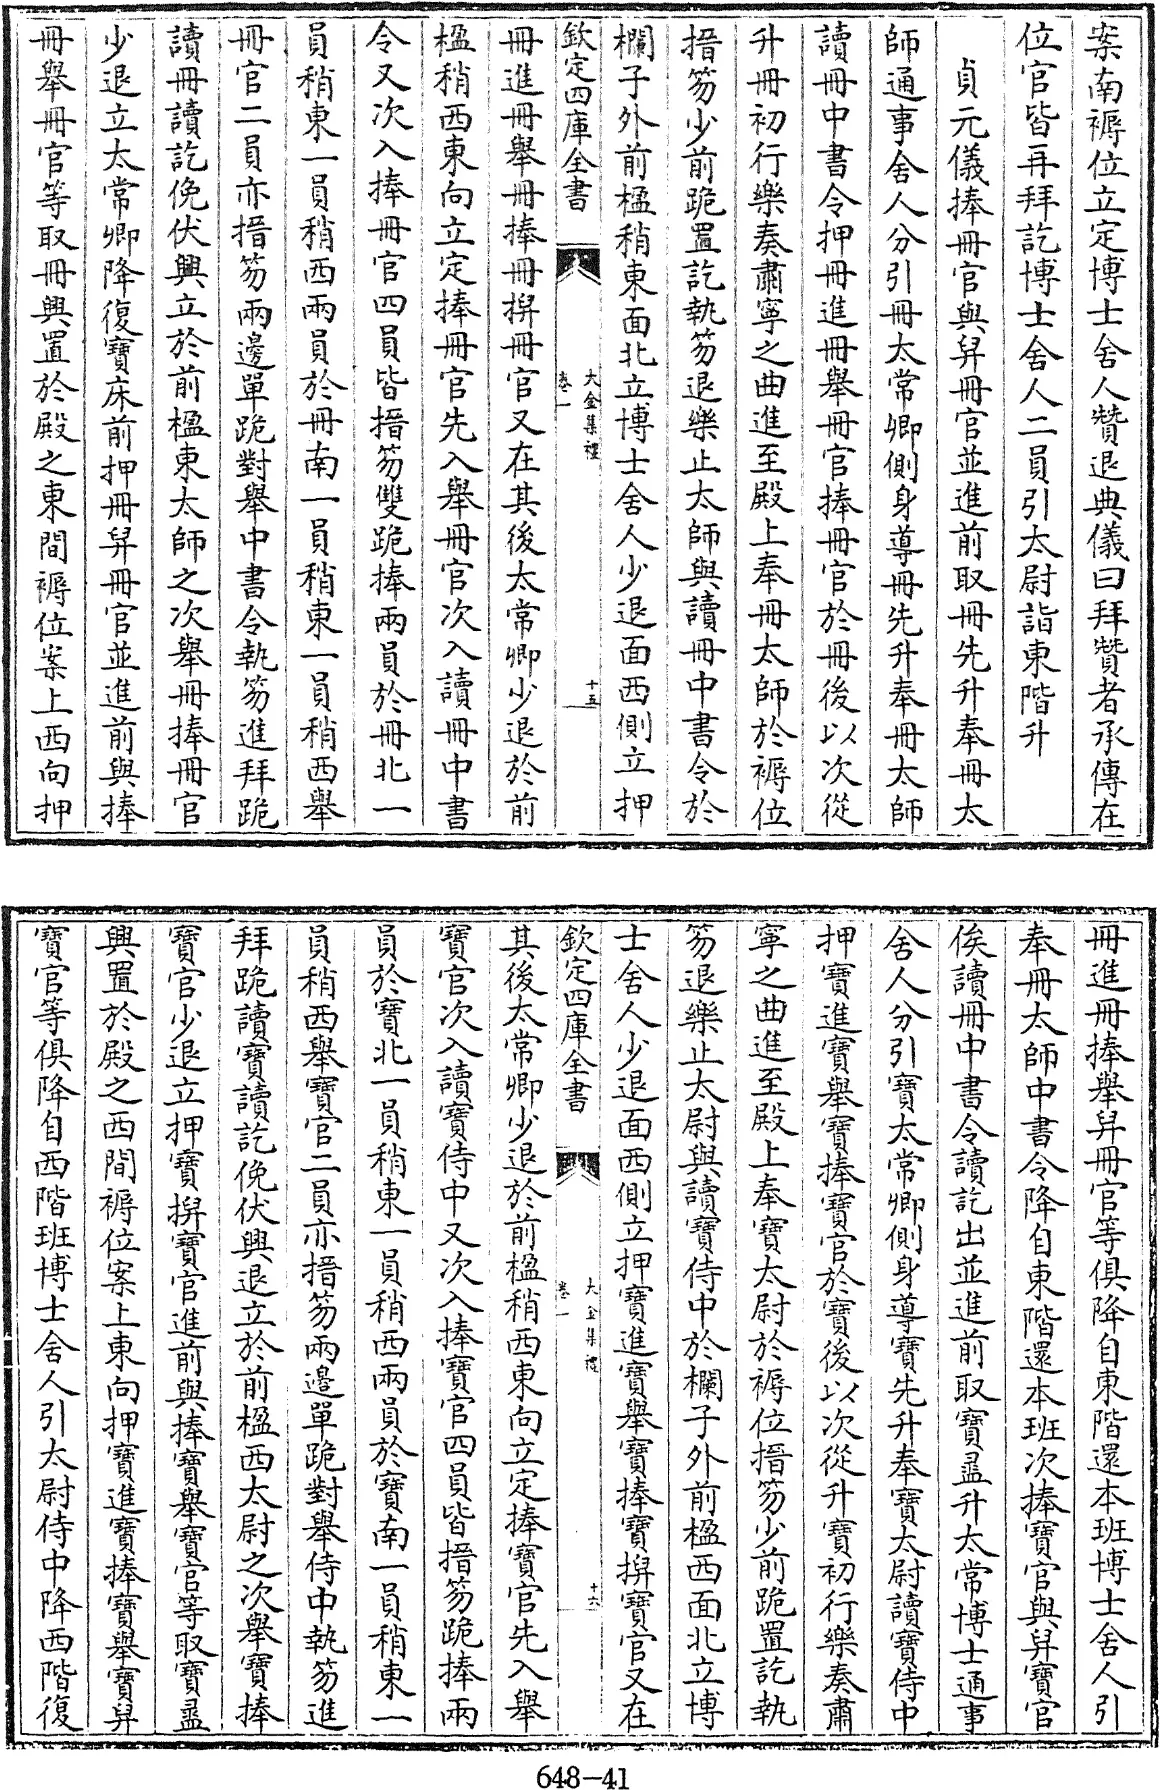 案南褥位立定博士舍人贊退典儀曰拜贊者承傳在
位官皆再拜訖博士舍人二員引太尉詣東階升
貞元儀捧冊官與舁冊官並進前取冊先升奉冊太
師通事舍人分引冊太常卿側身導冊先升奉冊太師
讀冊中書令押冊進冊舉冊官捧冊官於冊後以次從
升冊初行樂奏肅寧之曲進至殿上奉冊太師於褥位
搢笏少前跪置訖執笏退樂止太師與讀冊中書令於
欄子外前楹稍東面北立博士舍人少退面西側立押
欽定四庫全書
大金集禮
卷一
十五
冊進冊舉冊捧冊搿冊官又在其後太常卿少退於前
楹稍西東向立定捧冊官先入舉冊官次入讀冊中書
令又次入捧冊官四員皆搢笏雙跪捧兩員於冊北一
員稍東一員稍西兩員於冊南一員稍東一員稍西舉
冊官二員亦搢笏兩邊單跪對舉中書令執笏進拜跪
讀冊讀訖俛伏興立於前楹東太師之次舉冊捧冊官
少退立太常卿降復寶床前押冊舁冊官並進前與捧
冊舉冊官等取冊興置於殿之東間褥位案上西向押
冊進冊捧舉舁冊官等俱降自東階還本班博士舍人引
奉冊太師中書令降自東階還本班次捧寶官與舁寶官
俟讀冊中書令讀訖出並進前取寶盝升太常博士通事
舍人分引寶太常卿側身導寶先升奉寶太尉讀寶侍中
押寶進寶舉寶捧寶官於寶後以次從升寶初行樂奏肅
寧之曲進至殿上奉寶太尉於褥位搢笏少前跪置訖執
笏退樂止太尉與讀寶侍中於欄子外前楹西面北立博
士舍人少退面西側立押寶進寶舉寶捧寶搿寶官又在
欽定四庫全書
大金集禮
卷一
十六
其後太常卿少退於前楹稍西東向立定捧寶官先入舉
寶官次入讀寶侍中又次入捧寶官四員皆搢笏跪捧兩
員於寶北一員稍東一員稍西兩員於寶南一員稍東一
員稍西舉寶官二員亦搢笏兩邊單跪對舉侍中執笏進
拜跪讀寶讀訖俛伏興退立於前楹西太尉之次舉寶捧
寶官少退立押寶搿寶官進前與捧寶舉寶官等取寶盝
興置於殿之西間褥位案上東向押寶進寶捧寶舉寶舁
寶官等俱降自西階班博士舍人引太尉侍中降西階復
648-41